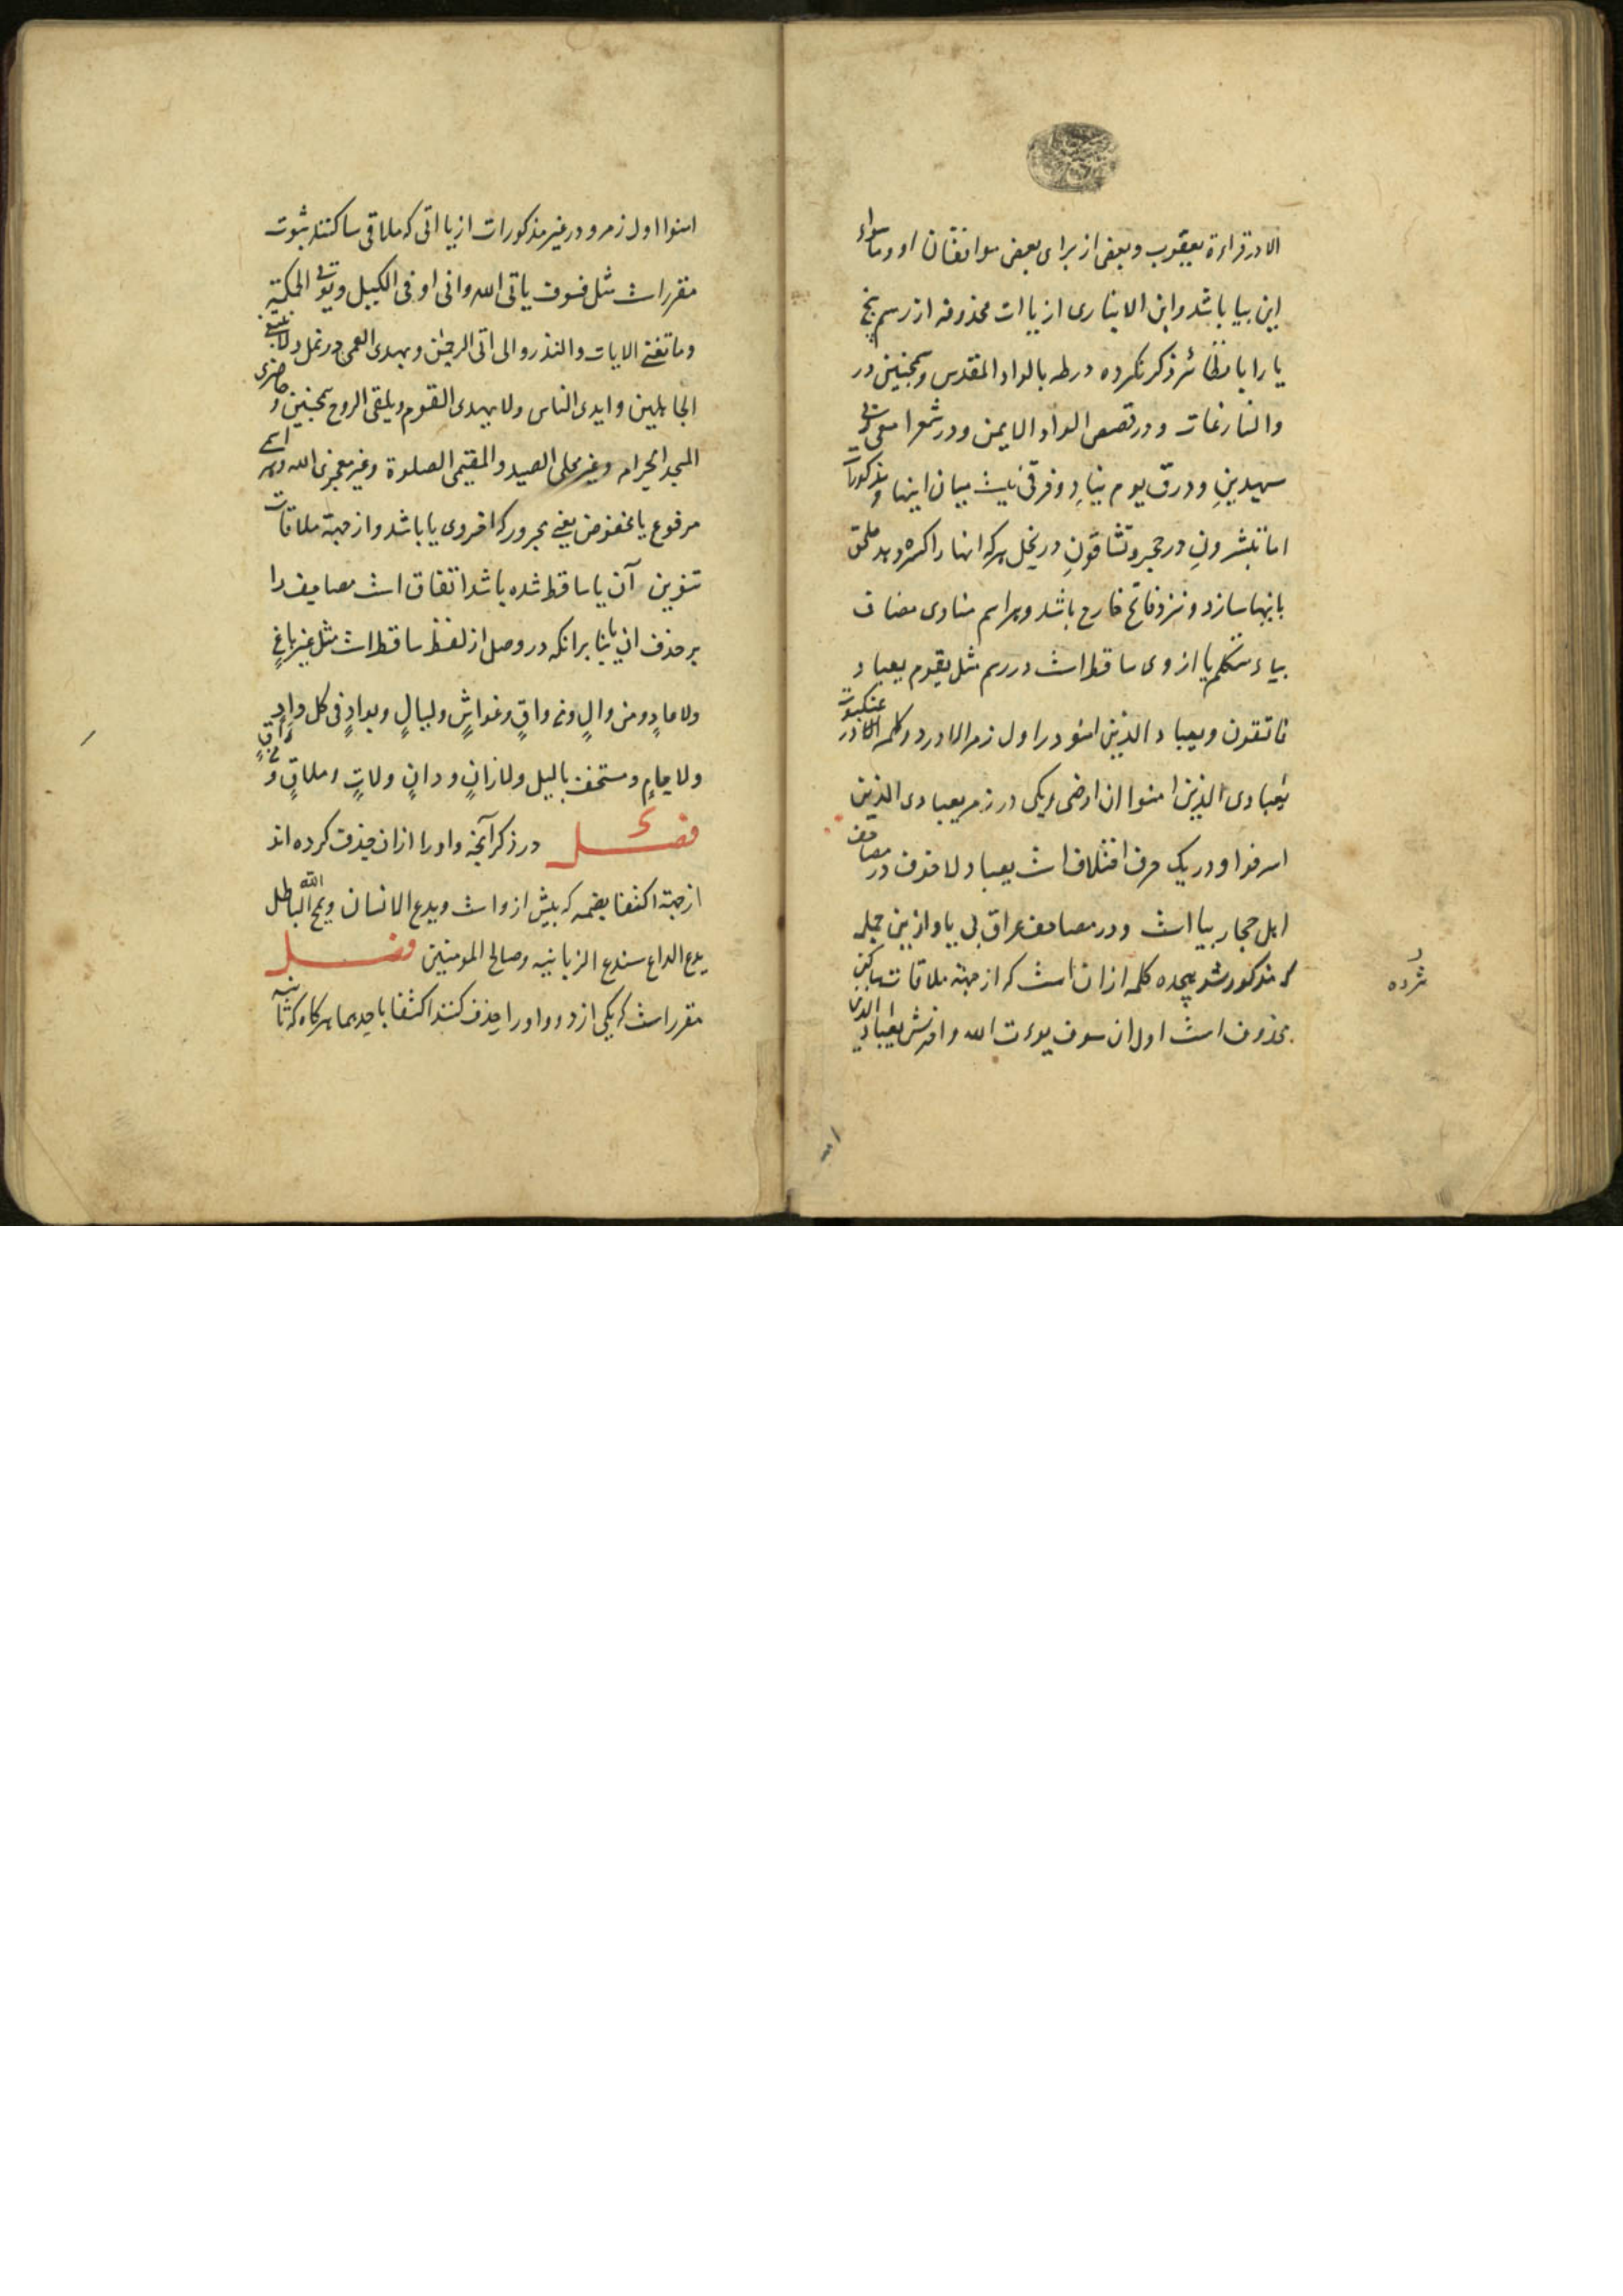 الا در قراءة یعقوب و بعضی از برای بعض موافقان او و ما سواء
این بیا باشد و ابن الانباری از یاات محذوفه از رسم پنج
یا را با نظائر ذکر نکرده در طه بالواد المقدس و همچنین در
والنازعات و در قصص الواد الایمن و در شعرا معی ربی
سیهدینِ و در ق یوم ینادِ و فرقی نیست میان اینها و مذکورات
اما تبشرونِ در حجر و تشاقونِ در نحل هر که انها را کسره دهد ملحق
باینها سازد و نزد فاتح خارج باشد و هر اسم منادی مضاف
بیاء متکلم یا از وی ساقط است در رسم مثل یقوم یعباد
فاتقون و یعباد الذین امنو در اول زمر الا در دو کلمه یکی در عنکبوت
یعبادی الذین امنوا ان ارضی و یکی در زمر یعبادی الذین
اسرفوا و در یک حرف اختلاف است یعباد لا خوف در مصاحف
اهل حجاز بیا است و در مصاحف عراق بی یا و ازین جمله
که مذکور شد هجده کلمه ازان است که از جهة ملاقات ساکنین
محذوف است اول ان سوف یوءت الله و اخرش یعباد الذین
امنوا اول زمر و در غیر مذکورات از یااتی که ملاقی ساکنند ثبوت
مقرر است مثل فسوف یاتی الله و انی اوفی الکیل و یوتی الحکمة
وما تغنی الایات والنذر و الی اتی الرحمن و بهدی العمی در نمل و لا نبتغی
الجاهلین و ایدی الناس و لا یهدی القوم و یلقی الروح همچنین و حاضری
المسجد الحرام و غیر محلی الصید و المقیمی الصلوة و غیر معجزی الله و هر اسمی
مرفوع یا مخفوض یعنی مجرور که اخر وی یا باشد و از جهة ملاقات
تنوین آن یا ساقط شده باشد اتفاق است مصاحف را
بر حذف ان یا بنا برانکه در وصل از لفظ ساقط است مثل غیر باغٍ
ولا عادٍ و من والٍ و من واقٍ و غواشٍ و لیالٍ و بوادٍ فی کل وادٍ
ولا حامٍ و مستخف بالیل و لا زانٍ و دانٍ و لاتٍ و ملاقٍ و من راقٍ
فصل در ذکر آنچه واو را ازان حذف کرده اند
از جهة اکتفا بضمه که پیش از و است و یدع الانسان و یمح الله الباطل
یدع الداع سندع الزبانیه و صالح المومنین فصل
مقرر است که یکی از دو واو را حذف کنند اکتفا باحدیهما هرکاه که ثانیه